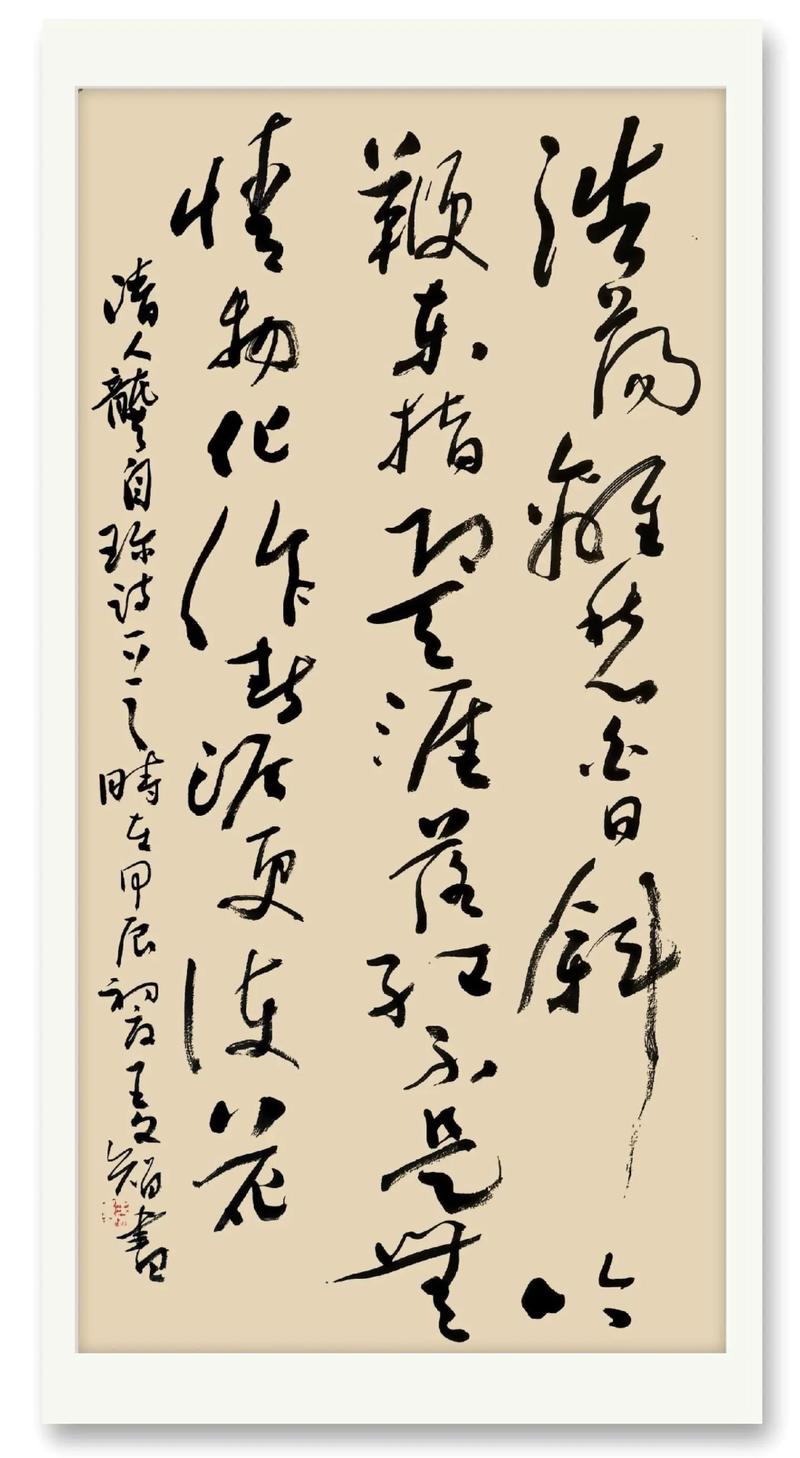 浩蕩離愁白日斜吟
鞭東指即天涯落紅不是無
情物化作春泥更護花
清人龔自珍詩一首時在甲辰初夏王文書